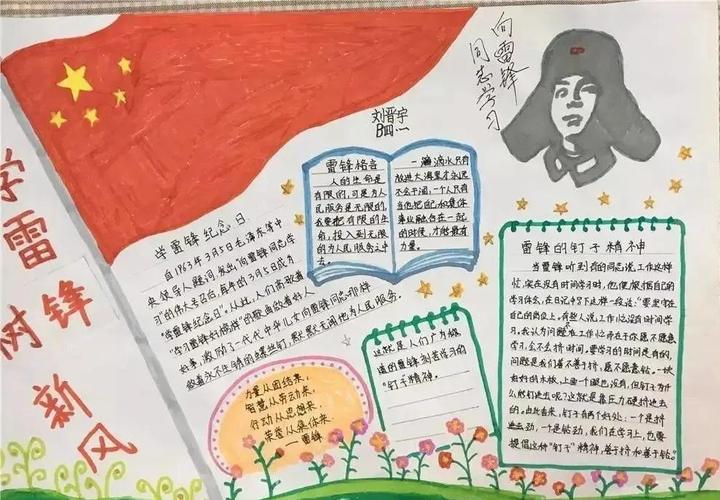 学雷锋
树新风
向雷锋
同志学习
刘晋宇
四
学雷锋纪念日
自1963年3月5日毛泽东等中
央领导人题词,发出"向雷锋同志学
习"的伟大号召后,每年的3月5日成为
"学雷锋纪念日"。从此,人们高歌着
"学习雷锋好榜样"的歌曲做着好人
好事,激励了一代代中华儿女向雷锋同志那样
做着永不生锈的螺丝钉,默默无闻地为人民服务。
雷锋格言
人的生命是
有限的,可是为人
民服务是无限的,
我要把有限的生
命,投入到无限
的为人民服务之中
去。
一滴水只有
放进大海里才永远
不会干涸,一个人只有
当他把自己和集体
事业融合在一起
的时候,才能最有
力量。
力量从团结来,
智慧从劳动来,
行动从思想来,
荣誉从集体来。
——雷锋
这就是人们广为称
道的雷锋刻苦学习的
"钉子"精神。
雷锋的钉子精神
当雷锋听到有的同志说工作这样
忙,实在没有时间学习时,他便根据自己的
学习体会,在日记中写下这样一段话:"要坚守在
自己的岗位上。有些人说工作忙没有时间学
习,我认为问题不在工作忙而在于你愿不愿意
学习,会不会挤时间。要学习的时间是有的,
问题是我们善不善于挤,愿不愿意钻。一块
好好的木板,上面一个眼也没有,但钉子为什
么能钉进去呢?这就是靠压力硬挤进去
的。由此看来,钉子有两个好处:一个是挤
进去劲,一个是钻劲,我们在学习上,也要
提倡这种"钉子"精神,善于挤和善于钻。"